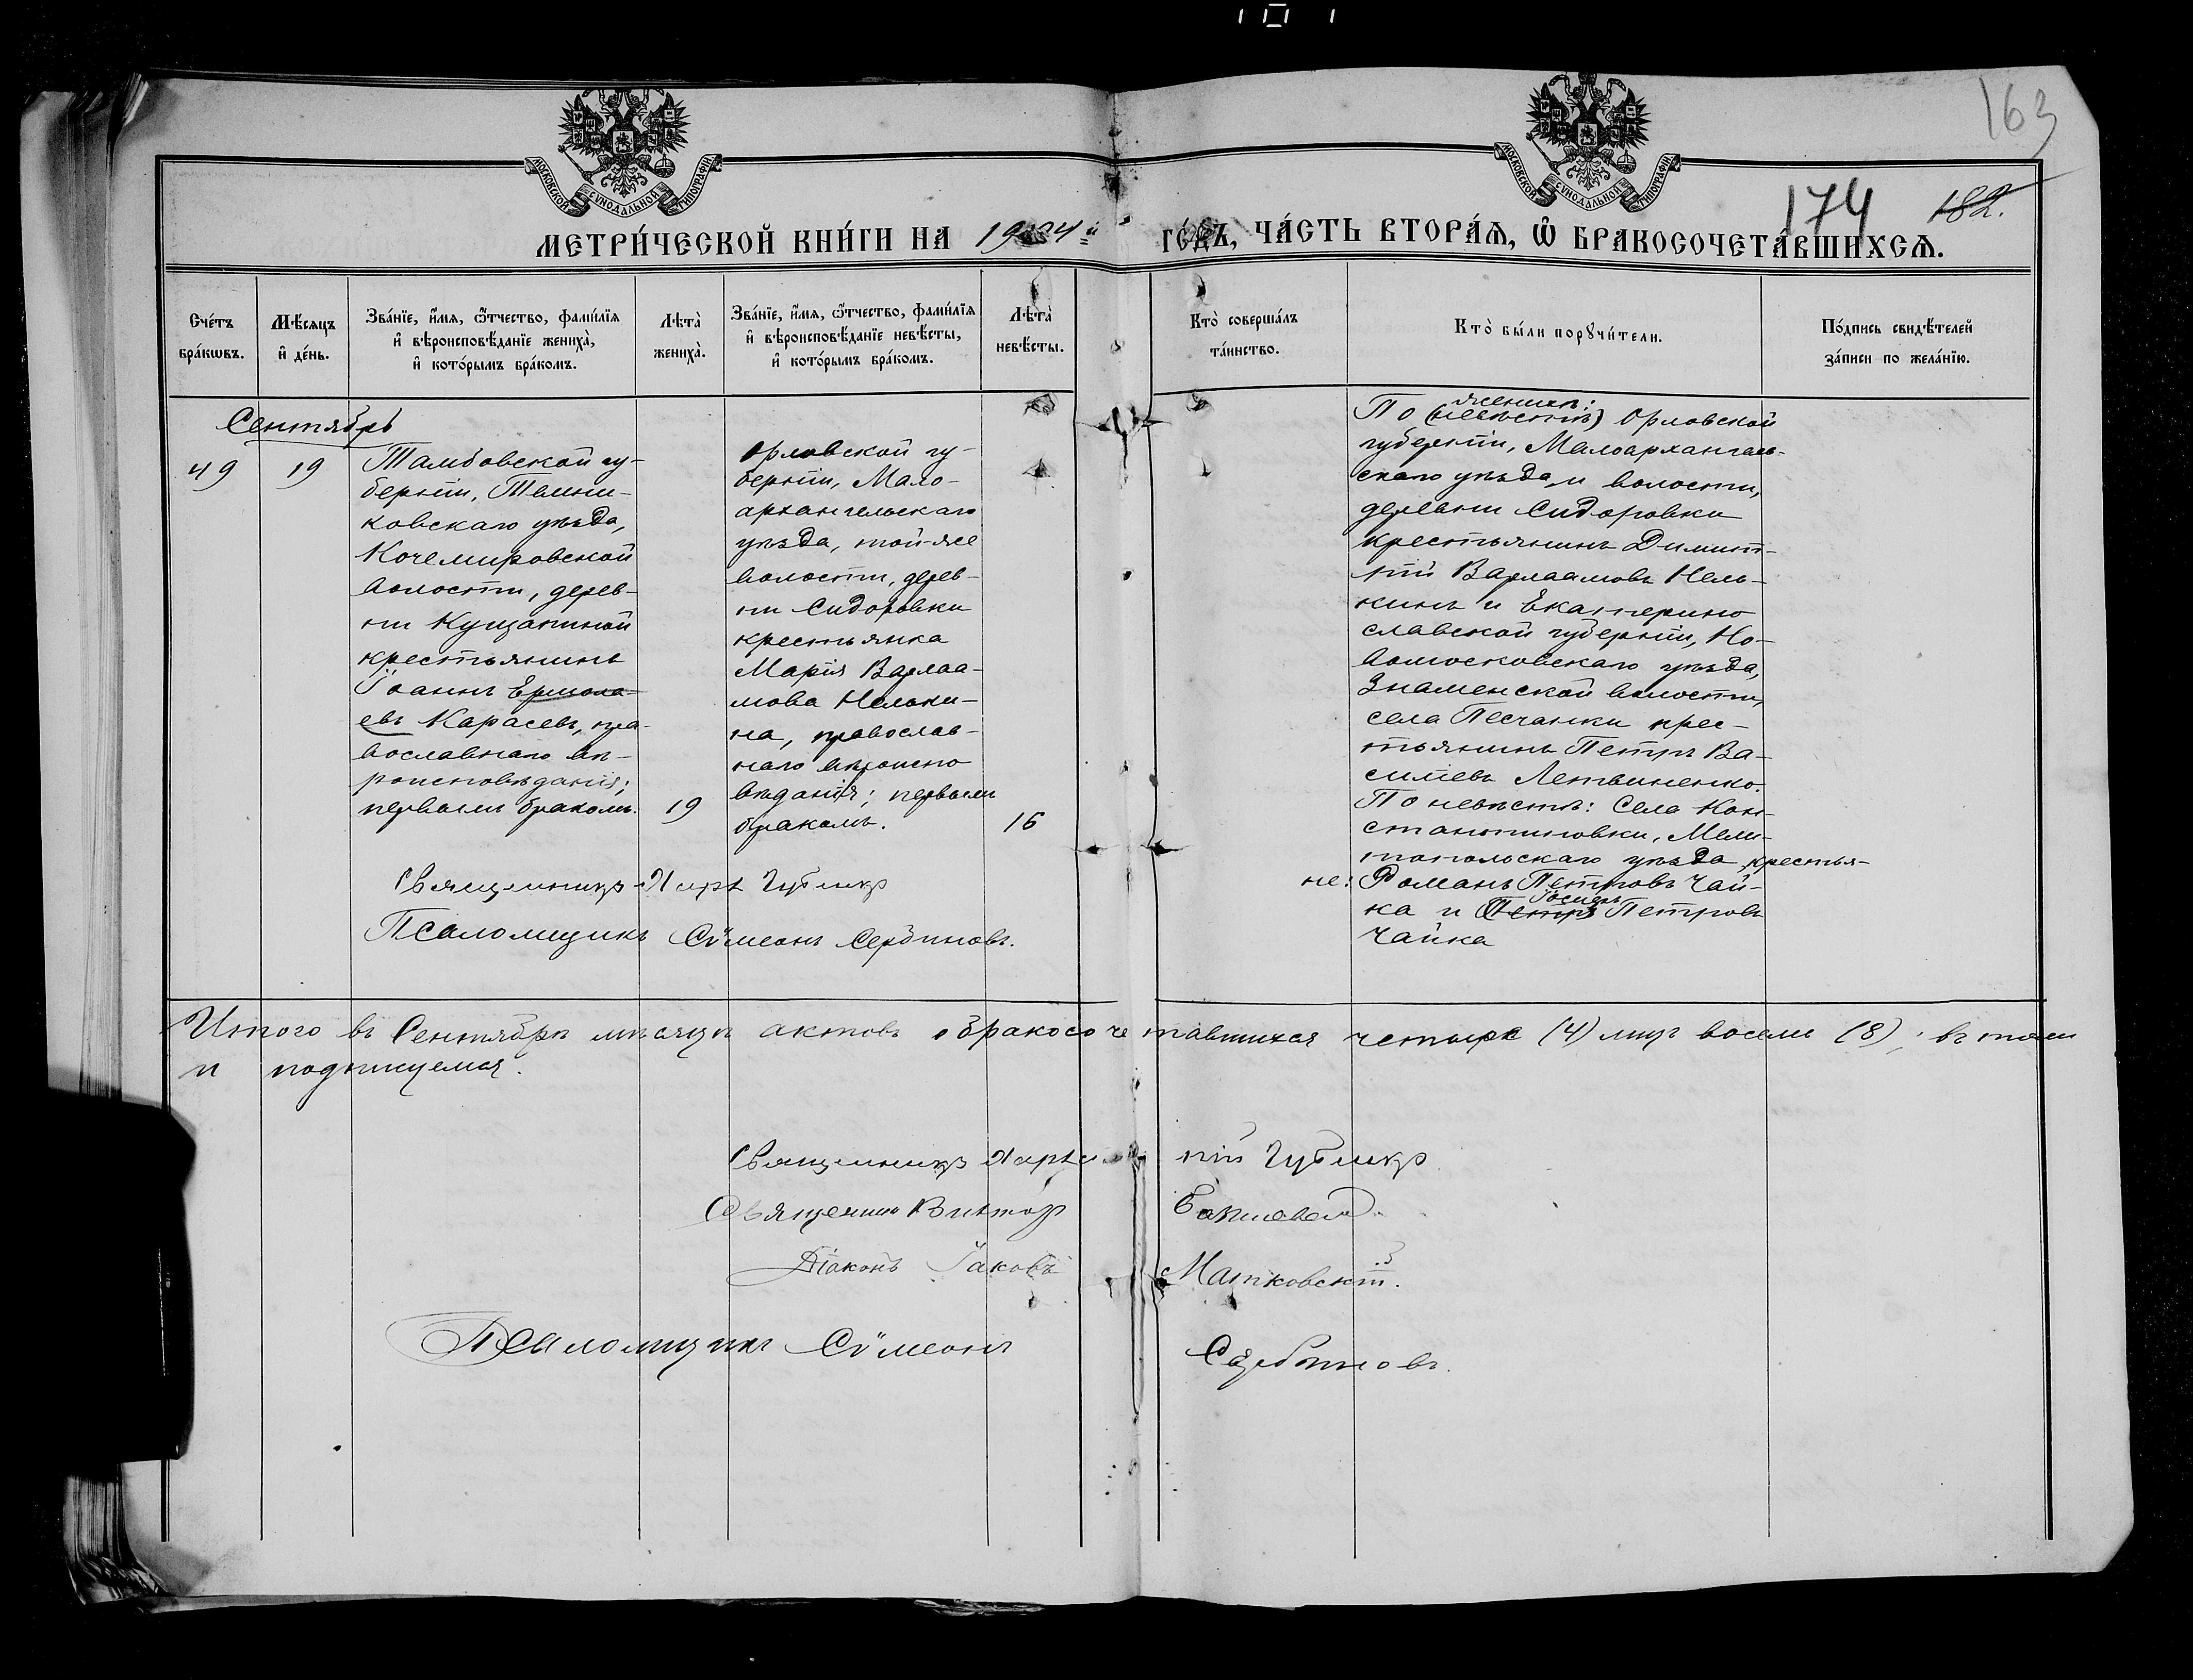 163
174 182.
МОСКОВСКОЙ СѴНОДАЛЬНОЙ ТИПОГРАФІИ
МОСКОВСКОЙ СѴНОДАЛЬНОЙ ТИПОГРАФІИ
МЕТРИ́ЧЕСКОЙ КНИ́ГИ НА
ГО́ДЪ, ЧА́СТЬ ВТОРА́Ѧ, Ѡ҆ БРАКОСОЧЕТА́ВШИХСѦ.
Сче́тъ бра́кѡвъ.
Мѣ́сяцъ и҆ де́нь.
Зва́нїе, и҆́мѧ, ѻ҆́тчество, фами́лїѧ и҆ вѣроисповѣ́данїе жениха̀, и҆ кото́рымъ бра́комъ.
Лѣта̀ жениха̀.
Зва́нїе, и҆́мѧ, ѻ҆́тчество, фами́лїѧ и҆ вѣроисповѣ́данїе невѣ́сты, и҆ кото́рымъ бра́комъ.
Лѣта̀ невѣ́сты.
Кто̀ соверша́лъ та́инство.
Кто̀ бы́ли порꙋчи́тели.
По́дпись свидѣ́телей за́писи по жела́нїю.
Сентябрь
49
19
Тамбовской гу-
берніи, Темни-
ковскаго уѣзда,
Кочемировской
волости, дерев-
ни
крестьянинъ
Іоаннъ Ермола-
евъ Карасевъ, пра-
вославнаго вѣ-
роисповѣданія;
первымъ бракомъ.
19
Орловской гу-
берніи, Мало-
архангельскаго
уѣзда, той-же
волости, дерев-
ни Сидоровки
крестьянка
Марія Варлаа-
мова Нельки-
на, православ-
наго вѣроиспо
вѣданія; первымъ
бракомъ.
16
женихѣ:
По (невѣстѣ) Орловской
губерніи, Малоархангель-
скаго уѣзда и волости,
деревни Сидоровки
крестьянинъ Димит-
рій Варлаамовъ Нель-
кинъ и Екатерино
славской губерніи, Но-
вомосковскаго уѣзда,
Знаменской волости,
села Песчанки крес-
тьянинъ Петръ Ва-
силіевъ Летвиненко.
По невѣстѣ: Села Кон-
стантиновки, Мели-
топольскаго уѣзда крестья-
не: Романъ Петровъ Чай-
Іосифъ
ка и Петръ Петровъ
Чайка
Священникъ
Псаломщикъ Сѵмеонъ Сербиновъ.
Итого въ Сентябрѣ мѣсяцѣ актовъ о бракосочетавшихся четыре (4) лицъ восемь (8), въ томъ
и подписуемся.
Священникъ
Священникъ Викторъ
Діаконъ Іаковъ Матковскій.
Псаломщикъ Сѵмеонъ Сербиновъ.